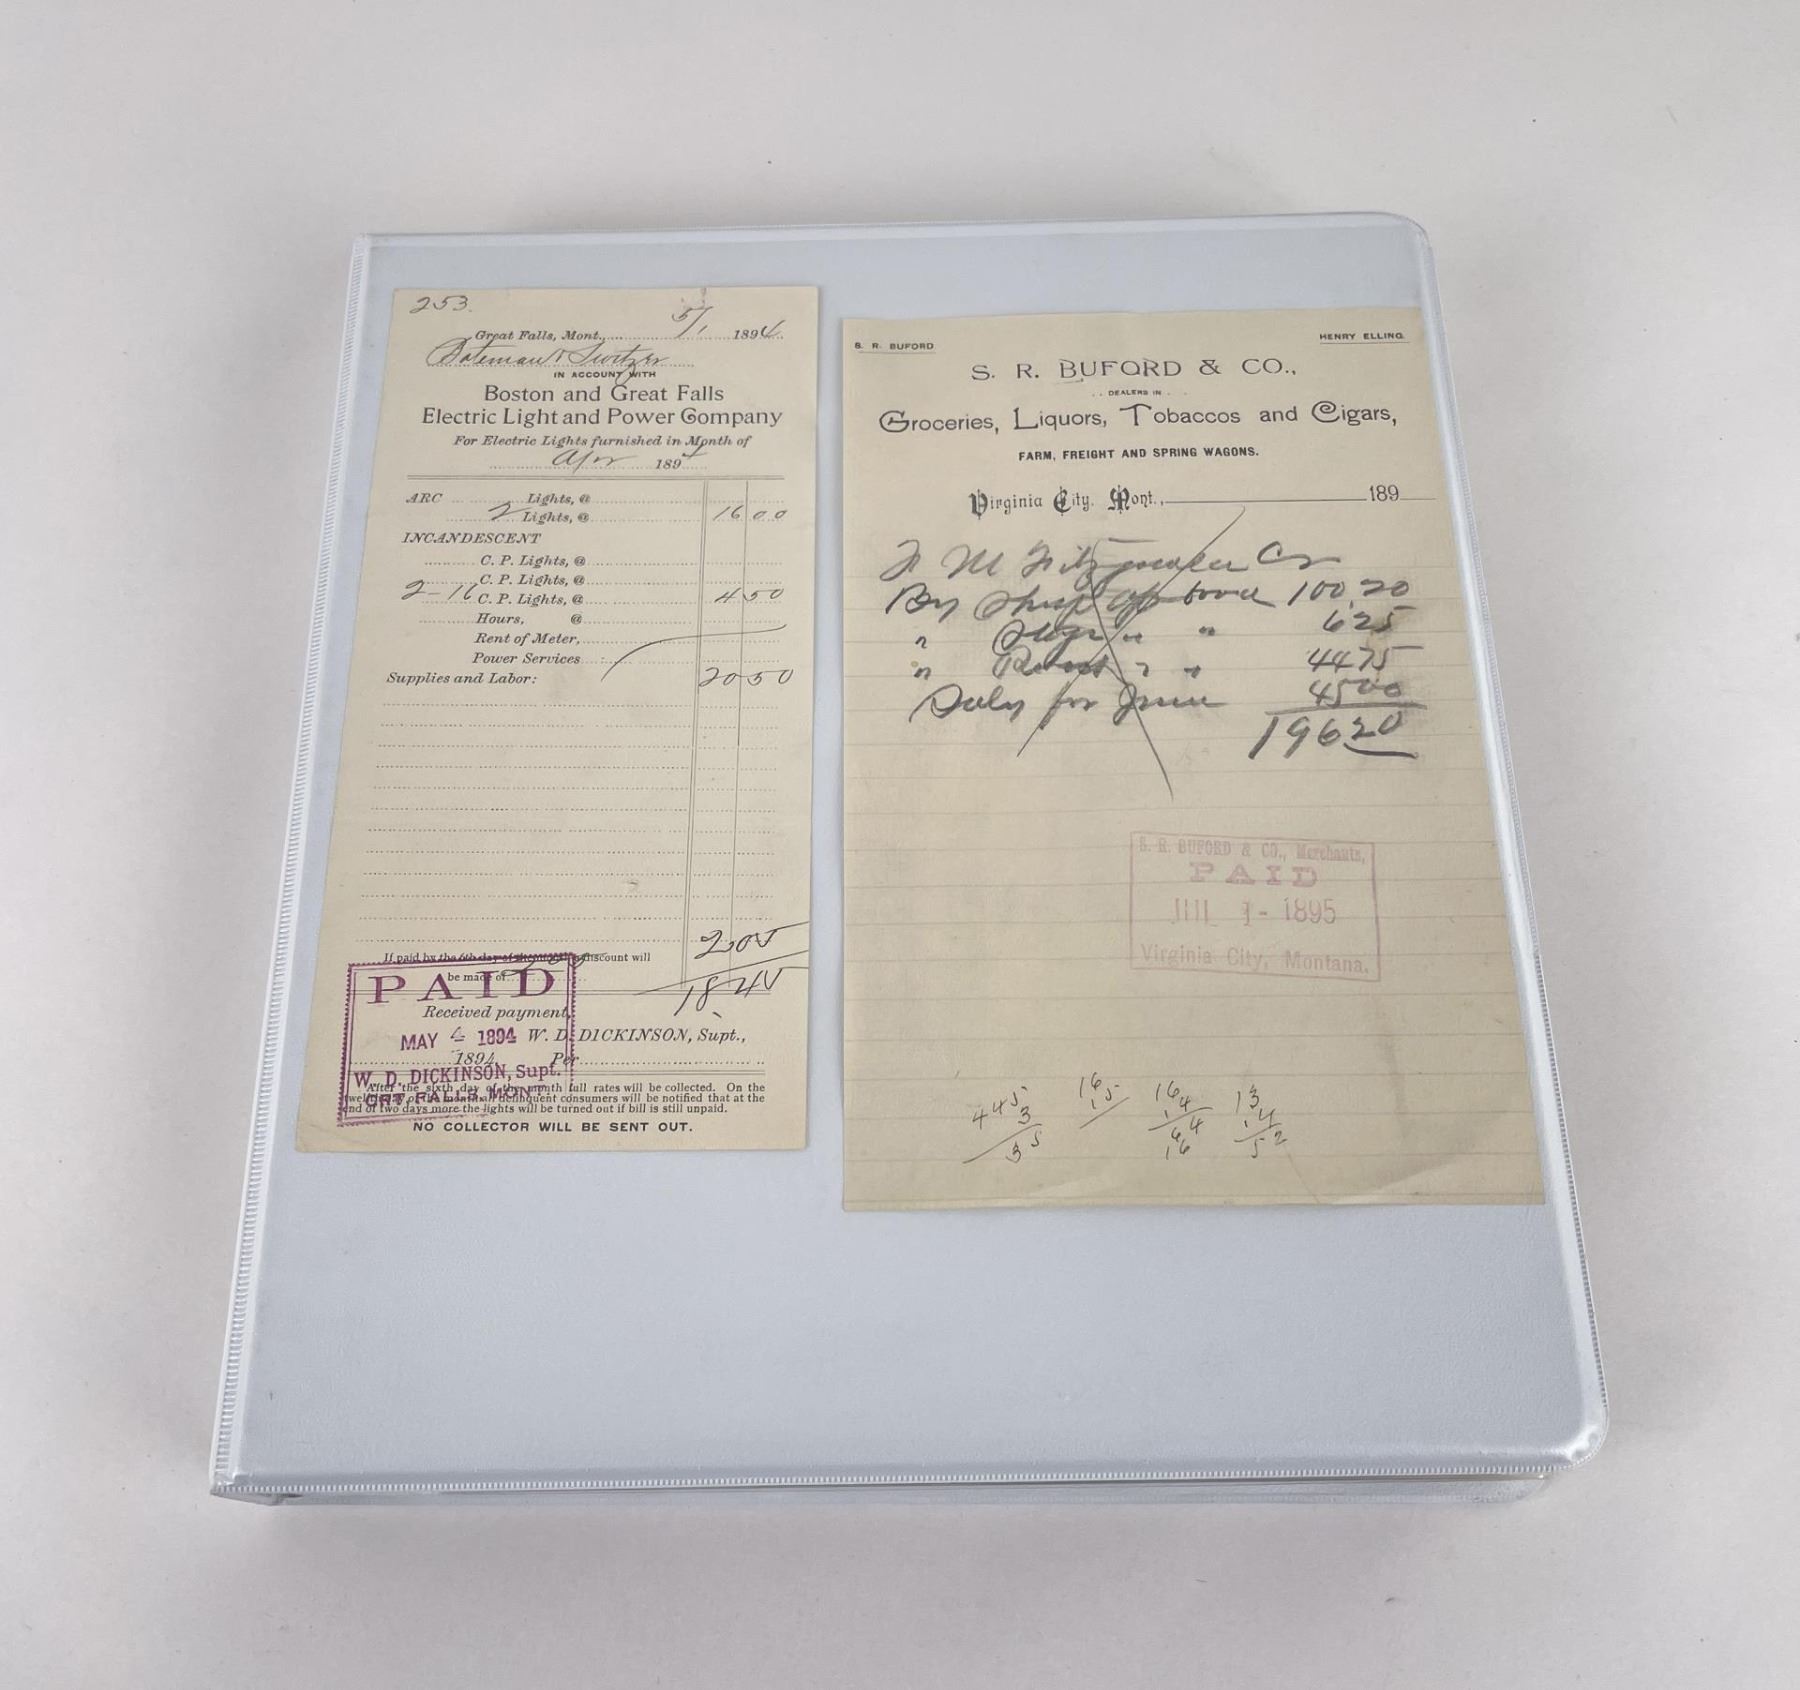 253.
5/1 1894
Great Falls, Mont.,
Bateman & Switzer
IN ACCOUNT WITH
Boston and Great Falls
Electric Light and Power Company
For Electric Lights furnished in Month of
Apr 1894
ARC Lights, @
2 Lights, @ 16 00
INCANDESCENT
C. P. Lights, @
C. P. Lights, @
2-16 C. P. Lights, @ 4 50
Hours, @
Rent of Meter,
Power Services
Supplies and Labor: 20 50
2.05
If paid by the 6th day of discount will
be made of
18.45
PAID
Received payment,
MAY 4 1894
W. D. DICKINSON, Supt.,
1894. Per
W. D. DICKINSON, Supt.
GRT. FALLS, MONT.
After the sixth day of the month full rates will be collected. On the
twelfth day of the month all delinquent consumers will be notified that at the
end of two days more the lights will be turned out if bill is still unpaid.
NO COLLECTOR WILL BE SENT OUT.
S. R. BUFORD HENRY ELLING
S. R. BUFORD & CO.,
DEALERS IN
Groceries, Liquors, Tobaccos and Cigars,
FARM, FREIGHT AND SPRING WAGONS.
Virginia City, Mont., 189
F M Cr
By of 100,20
" " " 6 25
" " " 44 75
for June 45 00
196 20
S. R. BUFORD & CO., Merchants,
PAID
JUL 1- 1895
Virginia City, Montana.
445 16 16 13
3 15 4 4
35 64 52
16